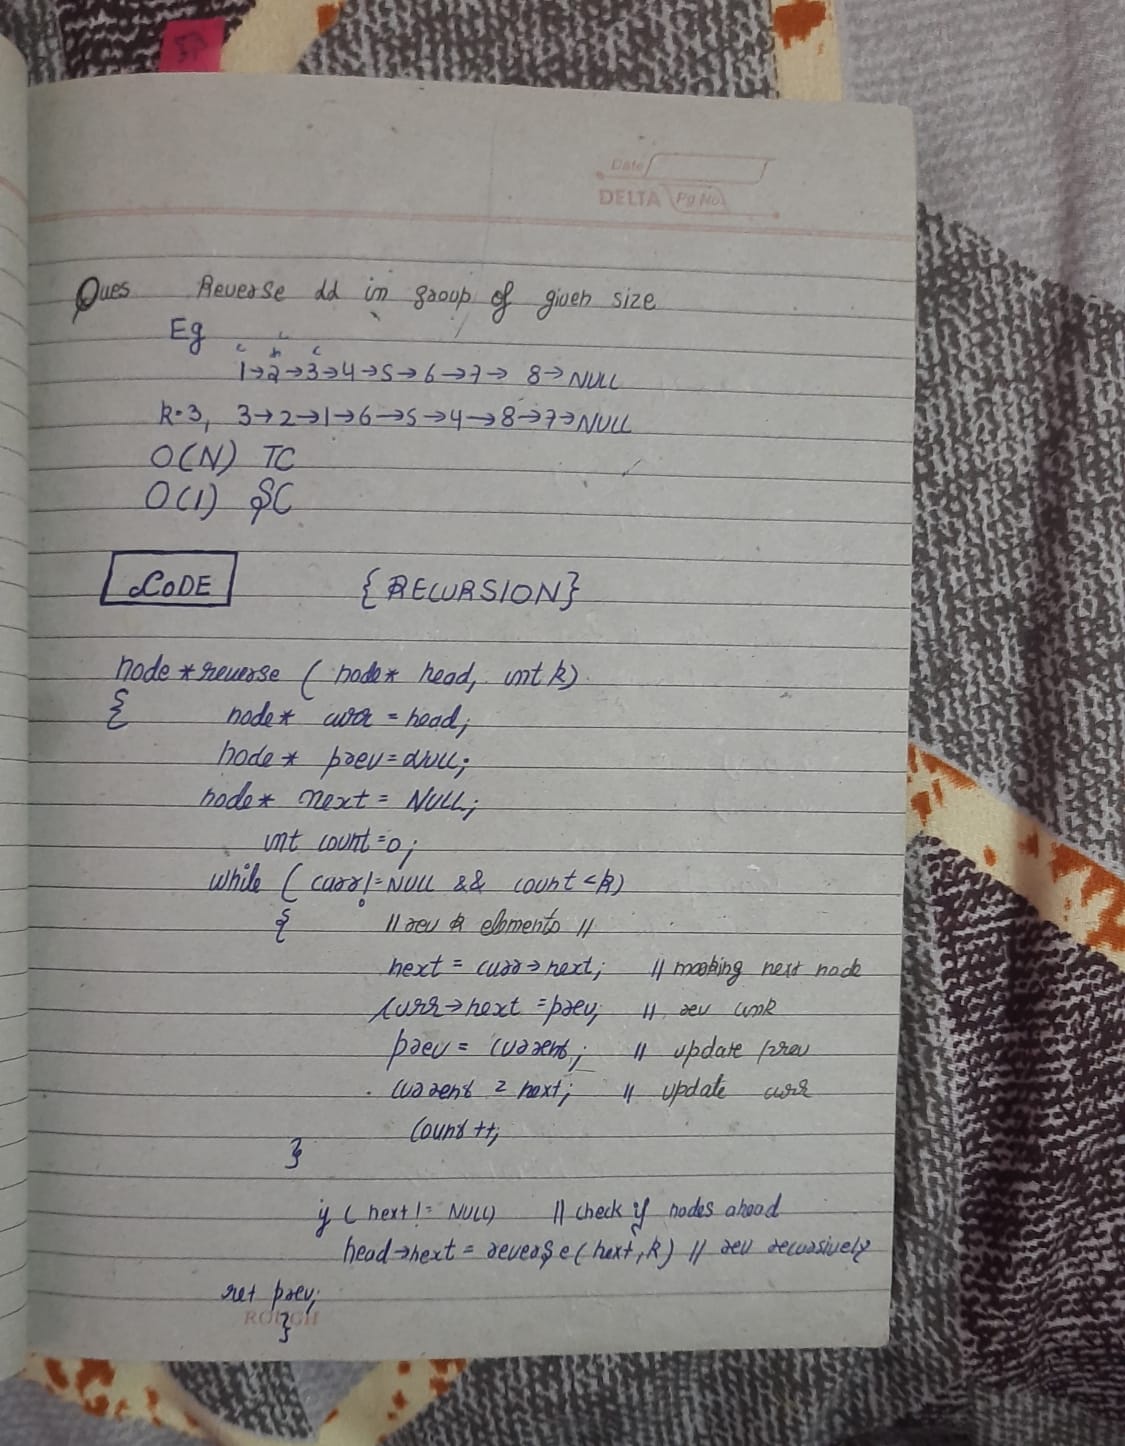 Date
DELTA Pg No
Ques Reverse ll in group of given size
Eg
1→2→3→4→5→6→7→ 8→NULL
k=3, 3→2→1→6→5→4→8→7→NULL
O(N) TC
O(1) SC
CODE {RECURSION}
node *reverse ( node* head, int k)
{ node* curr = head;
node* prev = NULL;
node* next = NULL;
int count=0;
while ( curr!=NULL && count<k)
{ // rev k elements //
next = curr→next; // making next node
curr→next = prev; // rev link
prev = current; // update prev
current = next; // update curr
count ++;
}
if ( next != NULL) // check if nodes ahead
head→next = reverse(next, k) // rev recursively
ret prev;
ROUGH
}